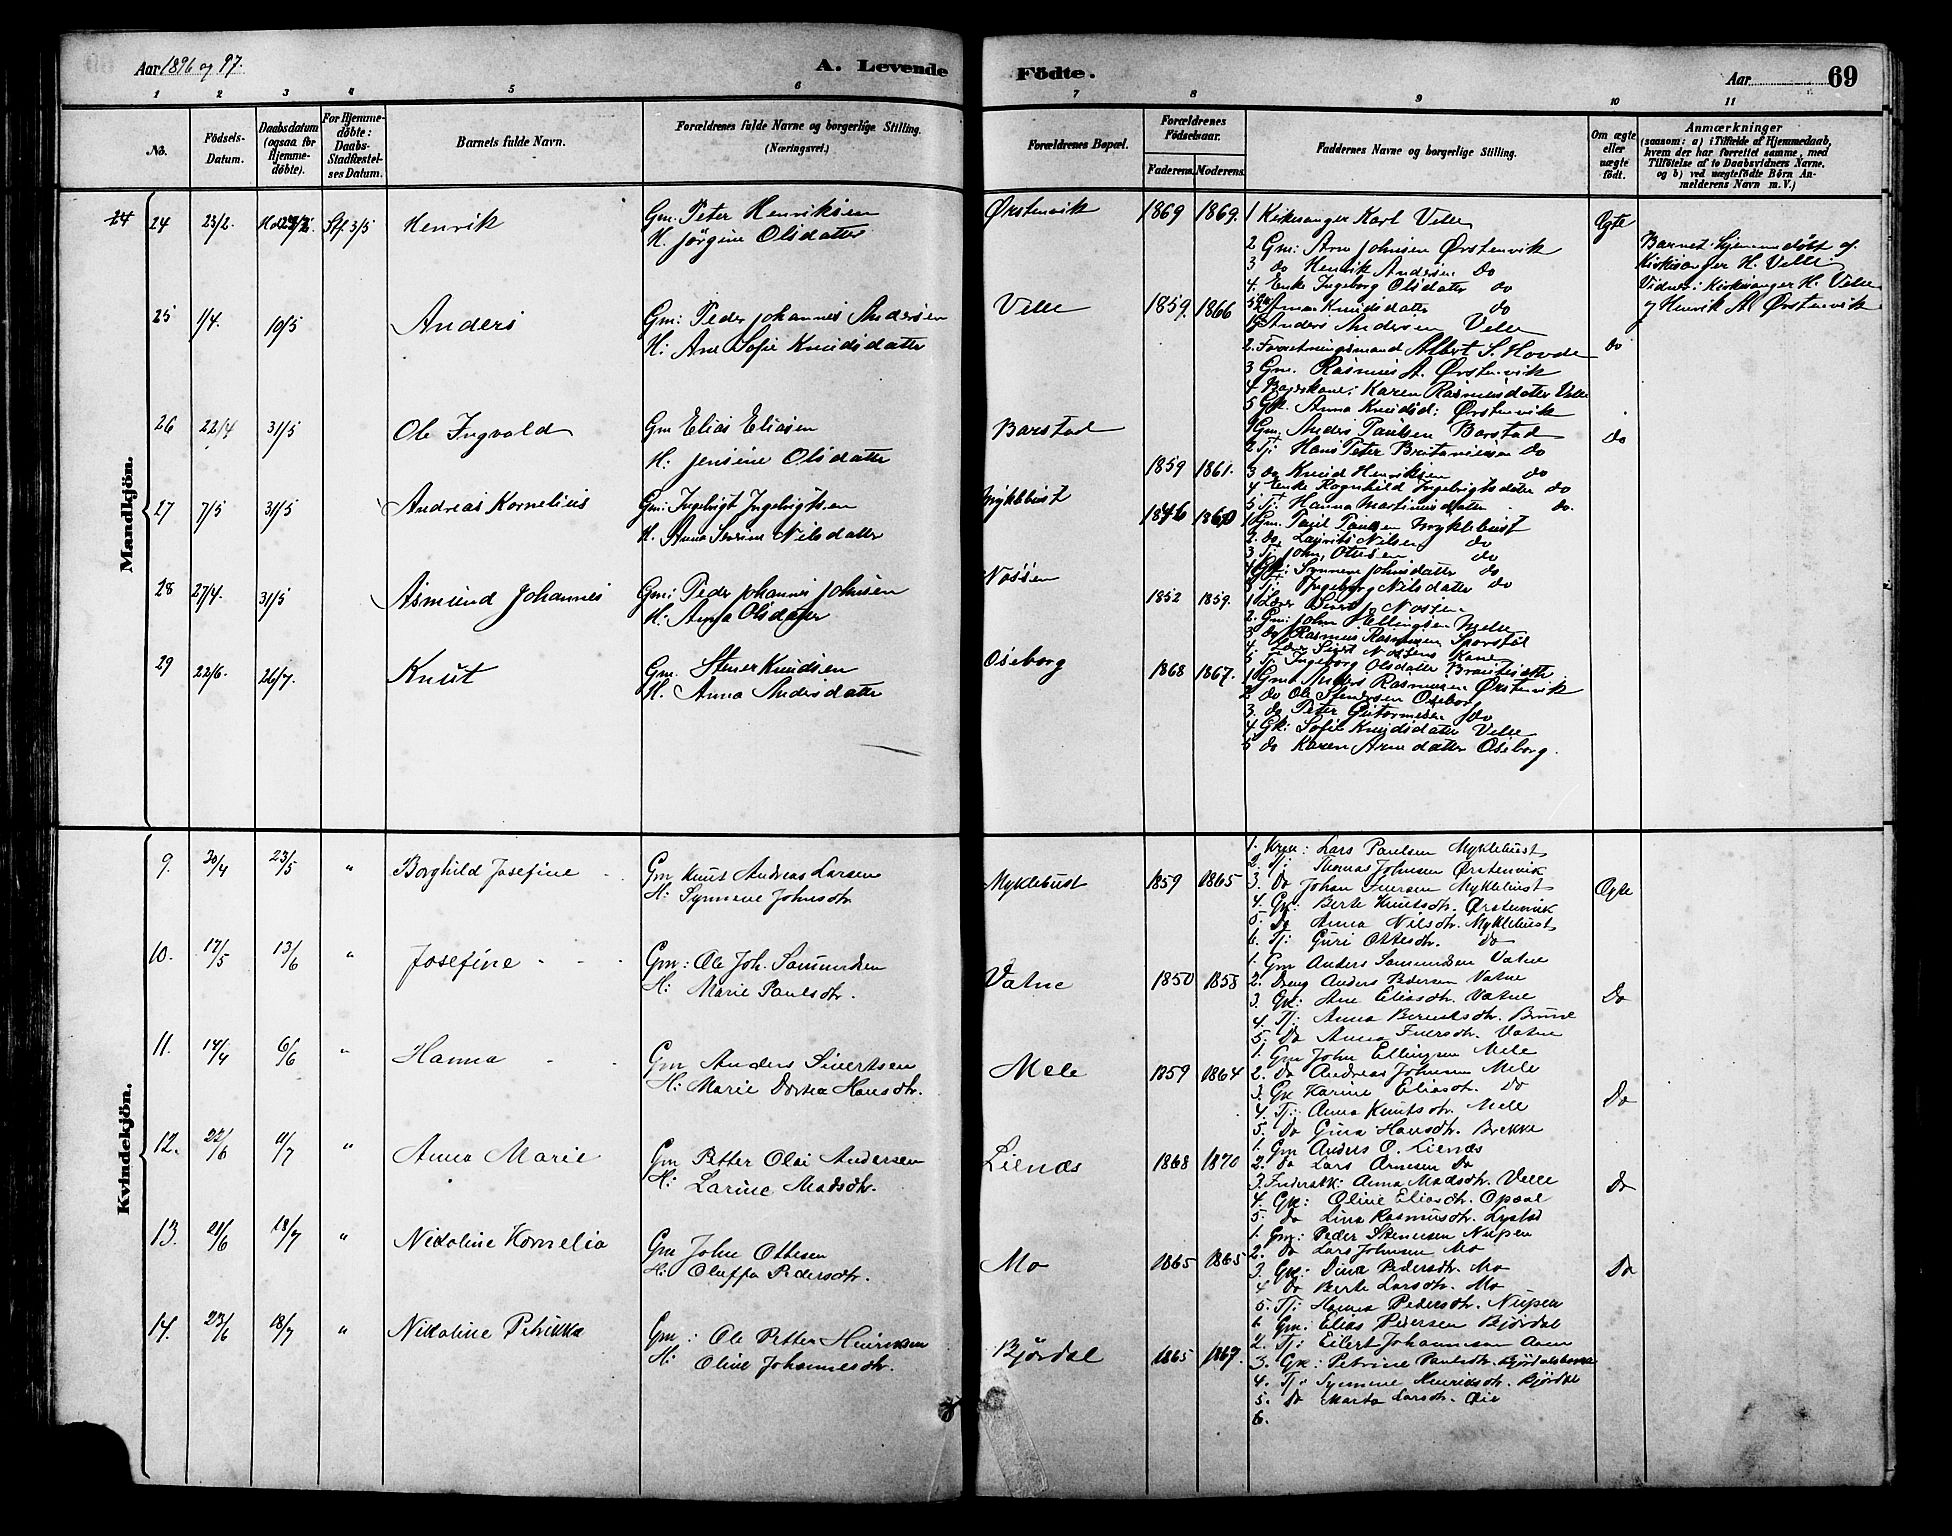 Aar 1896 og 97.
A. Levende Födte.
Aar 69
1 2 3 4 5 6 7 8 9 10 11
No.
Födsels-Datum.
Daabsdatum (ogsaa for Hjemmedöbte).
For Hjemmedöbte: Daabs-Stadfæstelses Datum.
Barnets fulde Navn.
Forældrenes fulde Navne og borgerlige Stilling. (Næringsvei.)
Forældrenes Bopæl.
Forældrenes Födselsaar.
Faderens. Moderens.
Faddernes Navne og borgerlige Stilling.
Om ægte eller uægte födt.
Anmærkninger
(saasom: a) i Tilfælde af Hjemmedaab, hvem der har forrettet samme, med Tilföielse af to Daabsvidners Navne, og b) ved uægtefödte Börn Anmelderens Navn m. V.)
Mandkjön.
24 24 23/2. Stf. 3/5 Henrik
Gm. Peter Henriksen
H. Jörgine Olsdatter
Ørstenvik 1869 1869.
1 Kirkesanger Karl Velle
2 Gm: Arne Johnsen Ørstenvik
3 do Henrik Andersen do
4. Enke Ingeborg Olsdatter do
5 Anna Knudsdatter do
Ægte
Barnet hjemmedöbt af
Kirkesanger H. Velle.
Vidner: Kirkesanger H. Velle
og Henrik A. Ørstenvik
25 1/4. 10/5 Anders
Gm: Peder Johannes Andersen
H: Ane Sofie Knudsdatter
Velle 1859. 1866
1 Anders Andersen Velle
2. Forretningsmand Albert S. Hovde
3 Gm. Rasmus A. Ørstenvik
4 Bagerkone: Karen Rasmusdatter Velle
5 Gk. Anna Knudsd: Ørstenvik
do
26 22/4 31/5 Ole Ingvald
Gm Elias Eliasen
H: Jensine Olsdatter
Barstad 1859 1861.
1 Gm. Anders Paulsen Barstad
2 Tj: Hans Peter do
3 do Knud Henriksen do
4 Enke Ragnhild Ingebrigtsdatter do
5 Tj: Hanna Martinusdatter do.
Do
27 7/5 31/5 Andreas Kornelius
Gm: Ingebrigt Ingebrigtsen
H. Anna Severine Nilsdatter
Myklebust 1846 1860
1 Gm. Paul Paulsen Myklebust
2. do Laurits Nilsen do
3 Tj John Ottesen do
4 Gk: Synneve Johnsdatter do
5 Tj: Ingeborg Nilsdatter do
28 27/4. 31/5 Asmund Johannes
Gm: Peder Johannes Johnsen
H: Anna Olsdatter
Nossen 1852 1859.
1 Lærer Sivert Nossen
2. Gm: John Ellingsen Melle
3 do Rasmus Rasmussen
4. Lærer Sivert Nossens Kone
5 Tj. Ingeborg Olsdatter
29 22/6. 26/7. Knut
Gm. Stener Knudsen
H. Anna Andersdatter
Oseborg 1868 1867.
1 Gm Anders Rasmussen Ørstenvik
2 do Ole Stenersen Osebor
3. do Peter Guttormsen do
4 Gk: Sofie Knudsdatter Velle
5 do Karen Arnedatter Oseborg.
Kvindekjön.
9. 30/4 23/5 " Borghild Josefine
Gm Knut Andreas Larsen
H: Synneve Johnsdtr.
Myklebust 1859 1865
1. Lars Paulsen Myklebust
2. Tj: Thomas Johnsen Ørstenvik
3. Do Johan Iversen Myklebust
4. Gk: Berte Knutsdtr. Ørstenvik
5. Do Anna Nilsdtr. Myklebust
6. Tj: Guri Ottesdtr. Do
Ægte
10. 17/5 13/6 " Josefine
Gm: Ole Joh. Samundsen
H: Marie Paulsdtr.
Vatne 1850 1858
1. Gm Anders Samundsen Vatne
2. Dreng Anders Pedersen Vatne
3. Gk: Ane Eliasdtr. Vatne
4. Tj: Anna Berentsdtr. Brune
5. Do Anna Iversdtr. Vatne
Do
11. 14/4 6/6 " Hanna
Gm Anders Sivertsen
H: Marie Dortea Hansdtr.
Mele 1859 1864
1. Gm John Ellingsen Mele
2. Do Andreas Johnsen Mele
3. Gk Karine Eliasdtr. Do
4. Tj: Anna Knutsdtr. Mele
5. Do Gina Hansdtr. Brekke
Do
12. 22/6 11/7 " Anna Marie
Gm Petter Olai Andersen
H: Larine Madsdtr.
Lienæs 1868 1870
1. Gm Anders O. Lienæs
2. Do Lars Arnesen Do
3. Anna Madsdtr. Velle
4. Gk: Oline Eliasdtr. Opsal
5. Do Lina Rasmusdtr. Lystad
Do
13. 21/6 18/7 " Nikoline Kornelia
Gm John Ottesen
H: Oluffa Pedersdtr.
Mo 1865 1865
1. Gm: Peder Stenersen Nupen
2. Do Lars Johnsen Mo
3. Gk: Dina Pedersdtr. Mo
4 Do Berte Larsdtr. Mo
5. Tj: Hanna Pedersdtr. Nupen
Do
14. 23/6 18/7 " Nikoline Petrikke
Gm: Ole Petter Henriksen
H: Oline Johannesdtr.
Björdal 1865 1867.
6 Gm: Elias Pedersen Bjørdal
2. Tj: Eilert Johannesen Aam
3. Gk: Petrine Paulsdtr.
4. Tj: Synneve Henriksdtr. Björdal
5. Do Marta Larsdtr.
6.